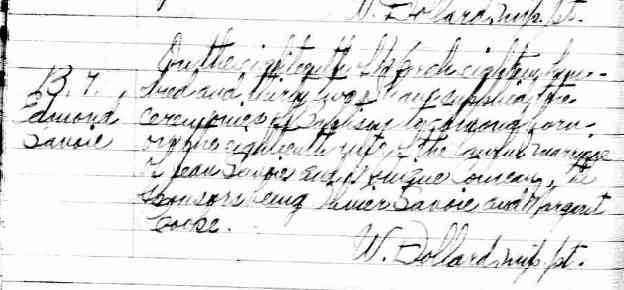 W. Dollard, miss. pt.
On the eighteenth of March eighteen hun-
B. 7. dred and thirty two I have supplied the
Edmond ceremonies of Baptism to Edmond born
Savoie on the eighteenth of the lawful marriage
of Jean Savoie and Monique Comeau, the
sponsors being Savoie and Margaret
Cooke.
W. Dollard, miss. pt.